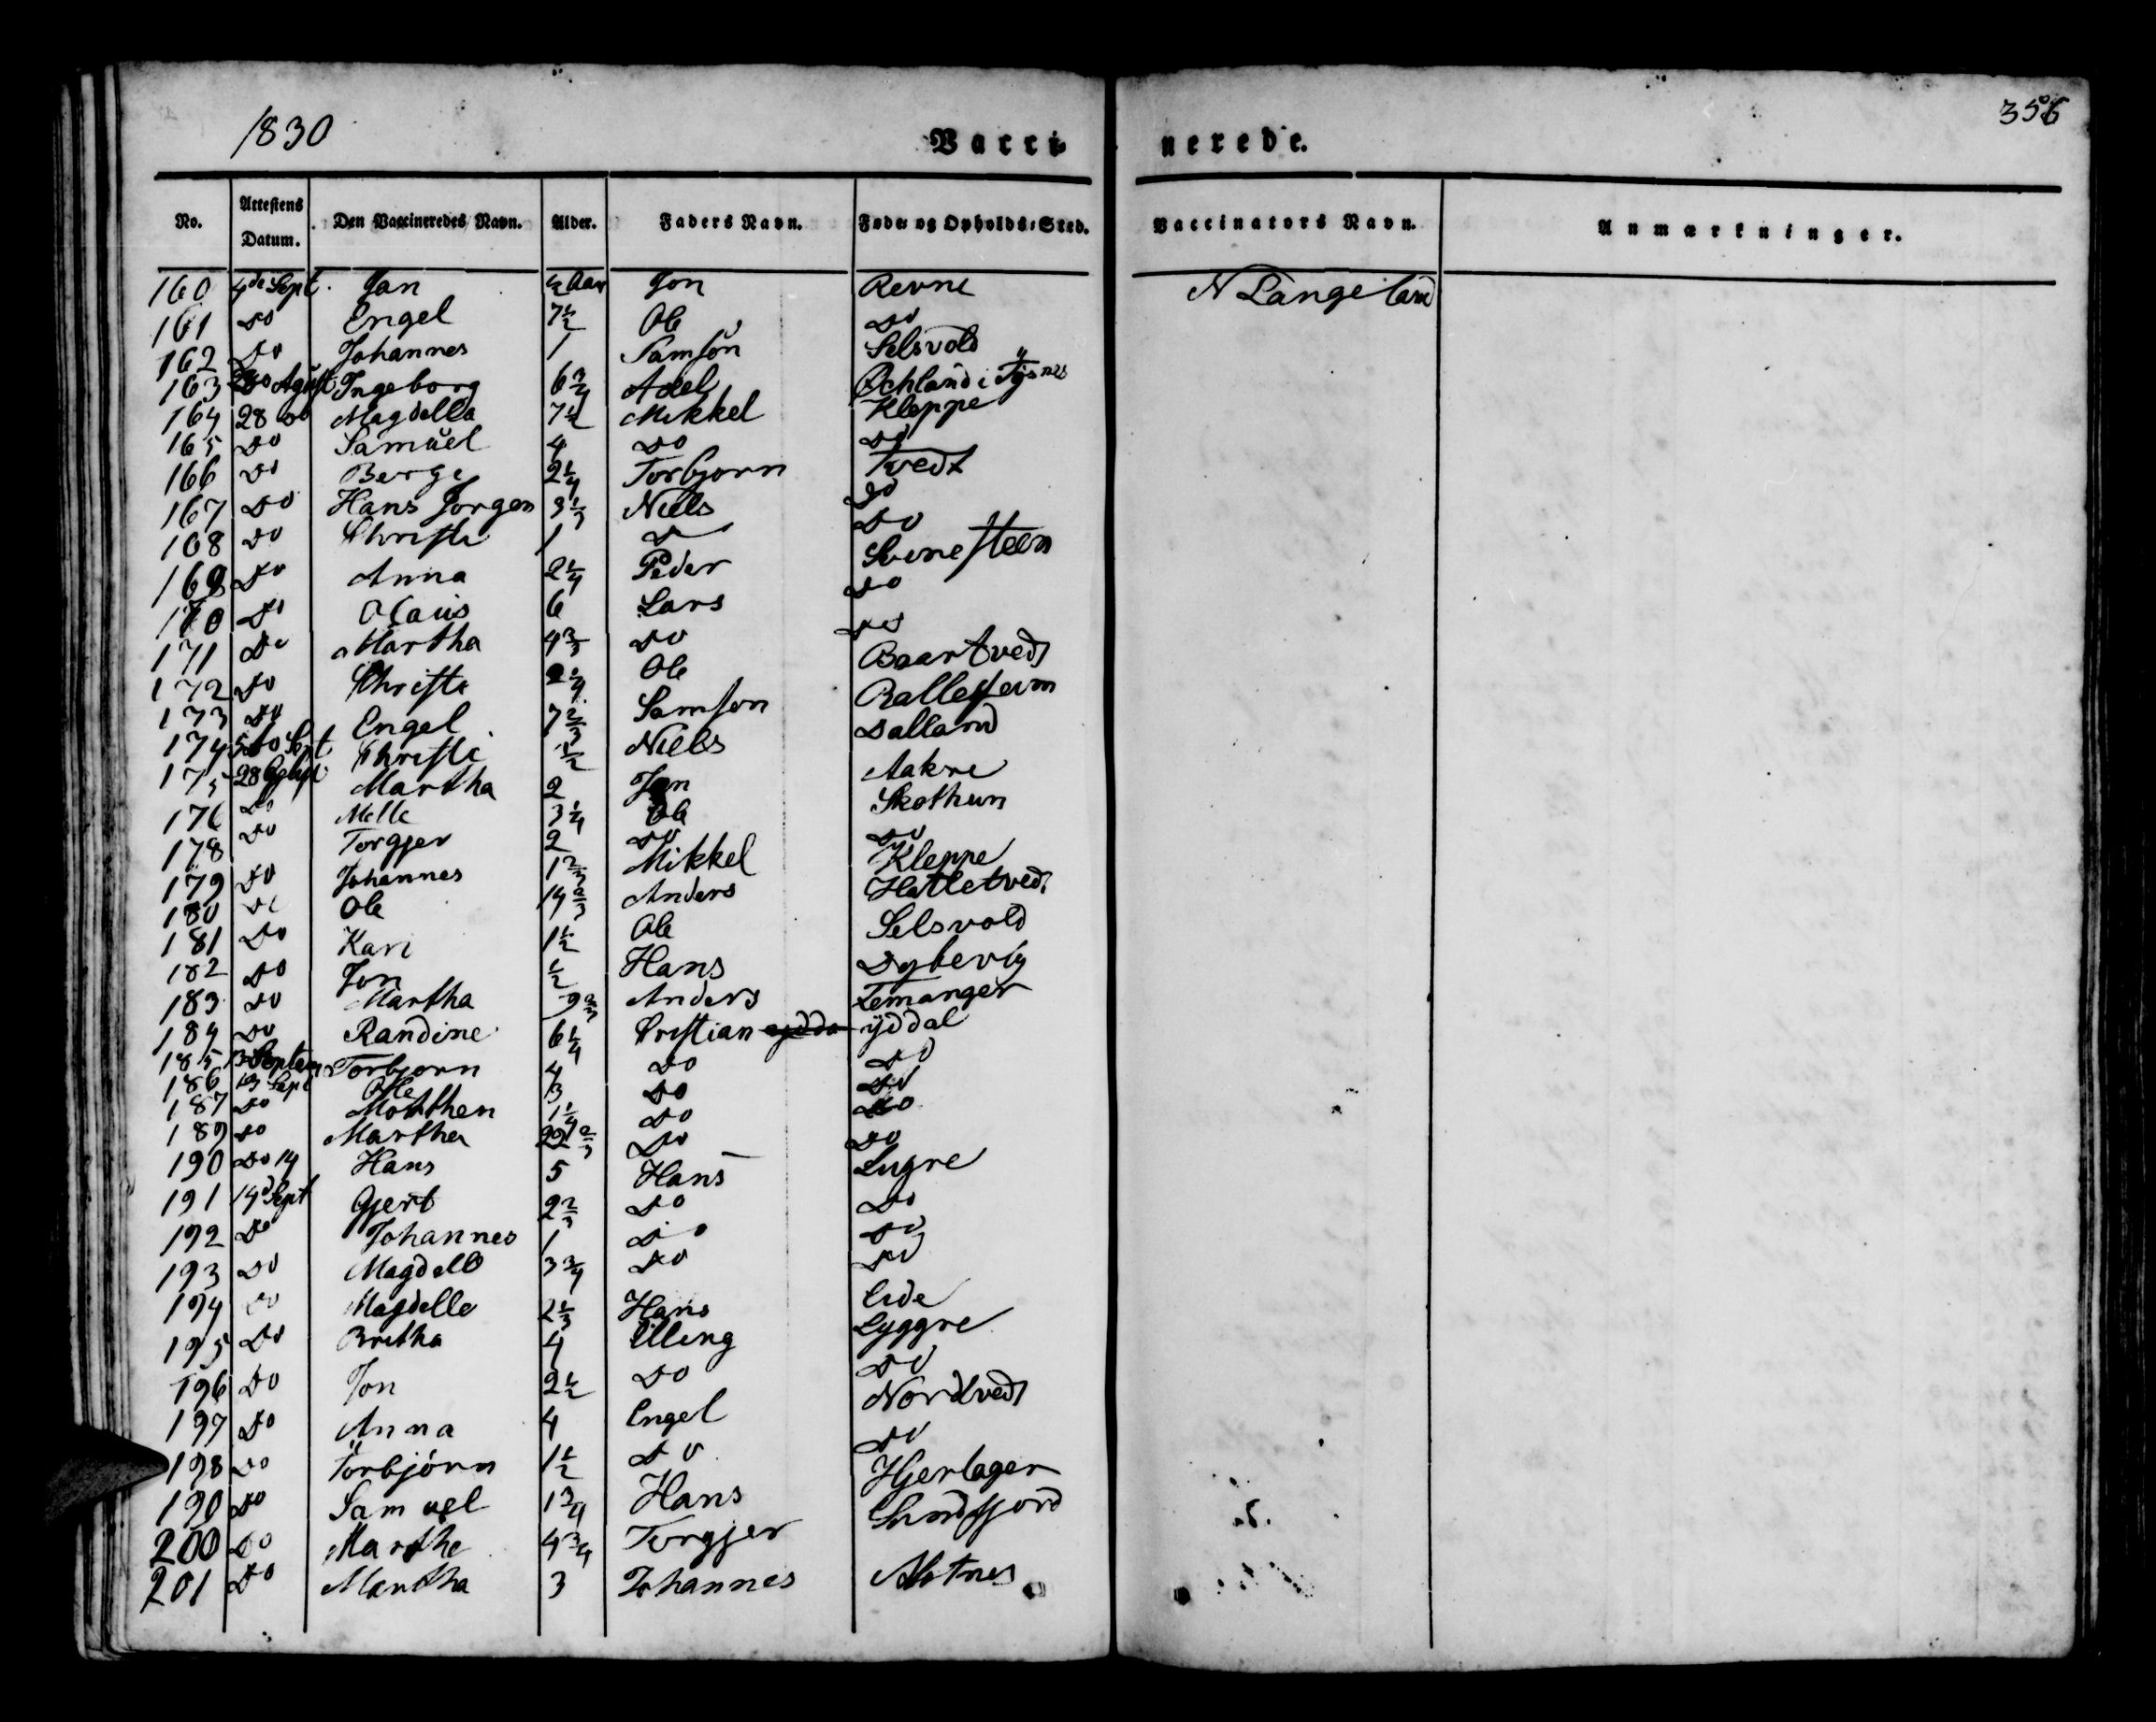 1830
Vacci-
nerede.
356
No.
Attestens Datum.
Den Vaccineredes Navn.
Alder.
Faders Navn.
Føde og Opholds-Sted.
Vaccinators Navn.
Anmærkninger.
160 4de Sept. Jan ½ Aar Jon Revne N Langeland
161 Do Engel 7½ Ole Do
162 Do Johannes 1 Samson Selsvold
163 Agust Ingeborg 6¾ Axel Øchland i Tysnes
164 28 Do Magdella 7½ Mikkel Kleppe
165 Do Samuel 4 Do Do
166 Do Berge 2¼ Torbjorn Tvedt
167 Do Hans Jorgen 3⅓ Niels Do
168 Do Christi 1 D Do
169 Do Anna 2¼ Peder Svinesteen
170 Do Olaus 6 Lars Do
171 Do Martha 4⅔ Do Do
172 Do Christi 2¼ Ole Baartvedt
173 Do Engel 7⅔ Samson Ballesem
174 5 Do Sept Christi ½ Niels Dalland
175 28 Martha 2 Jan Aakre
176 Do Melle 3¼ Ole Skothun
178 Do Torgjer 2 Do Do
179 Do Johannes 1⅔ Mikkel Kleppe
180 Do Ole 14⅔ Anders Hatletvedt
181 Do Kari 1½ Ole Selsvold
182 Do Jon ½ Hans Dybevig
183 Do Martha 9⅔ Anders Temanger
184 Do Randine 6¼ Cristian ydda yddal
185 13 Septem Torbjorn 4 Do Do
186 13 Sept Ole 13 Do Do
187 Do Motthen 1¼ Do Do
189 Do Martha 22⅔ Do Do
190 Do 14 Hans 5 Hans Lugre
191 14d Sept Gjert 2⅔ Do Do
192 Do Johannes 1 Do Do
193 Do Magdell 3¾ Do Do
194 Do Magdelle 2⅓ Hans Eide
195 Do Britha 4 Elling Lyggre
196 Do Jon 2½ Do Do
197 Do Anna 4 Engel Nordtvedt
198 Do Torbjörn 1½ Do Do
190 Do Samuel 1¾ Hans Hjertager
200 Do Marthe 4¾ Torgjer Sundfjord
201 Do Martha 3 Johannes